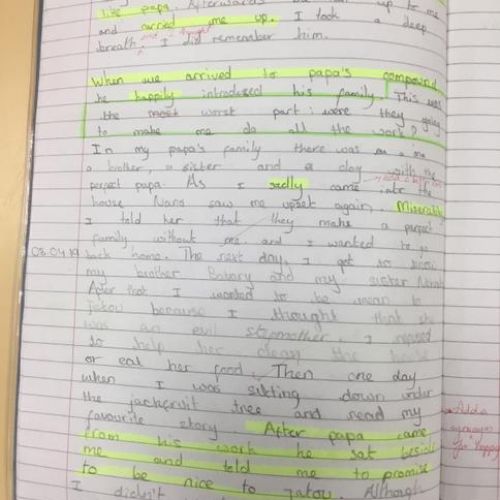 like papa. Afterwards up to me
and carred me up. I took a deep
breath. I did remember him.
When we arrived to papa's compound
he happily introduced his family. This was
the most worst part: were they going
to make me do all the work?
In my papa's family there was
a brother, a sister and a dog with my
perfect papa. As I sadly came into the
house Nana saw me upset again. Miserably
I told her that they make a perfect
family without me and I wanted to go
03.04.19 back home. The next day, I got to know
my brother and my sister
After that I wanted to be mean to
because I thought that she
was an evil stepmother. I refused
to help her clean the house
or eat her food. Then one day
when I was sitting down under
the jackfruit tree and read my
favourite story. After papa came
from his work he sat beside
me and told me to promise
to be nice to Although
I didn't
Add a
synonym
for 'happy'